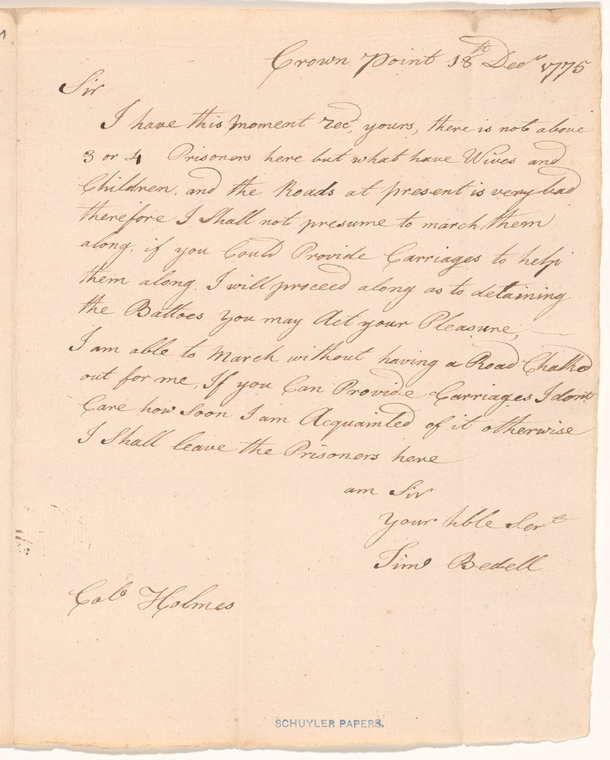 Crown Point 18th Decr 1775
Sir
I have this moment Recd, yours, there is not above
3 or 4 Prisoners here but what have Wives and
Children. and the Roads at present is very bad
therefore I Shall not presume to march them
along. if you Could Provide Carriages to help
them along. I will proceed along as to detaining
the Battoes you may Act your Pleasure,
I am able to March without having a Road Chalkd
out for me, If you Can Provide Carriages I dont
Care how Soon I am Acquainted of it otherwise
I Shall leave the Prisoners here
am Sir
Your hble Servt
Timo Bedell
Colo Holmes
SCHUYLER PAPERS.